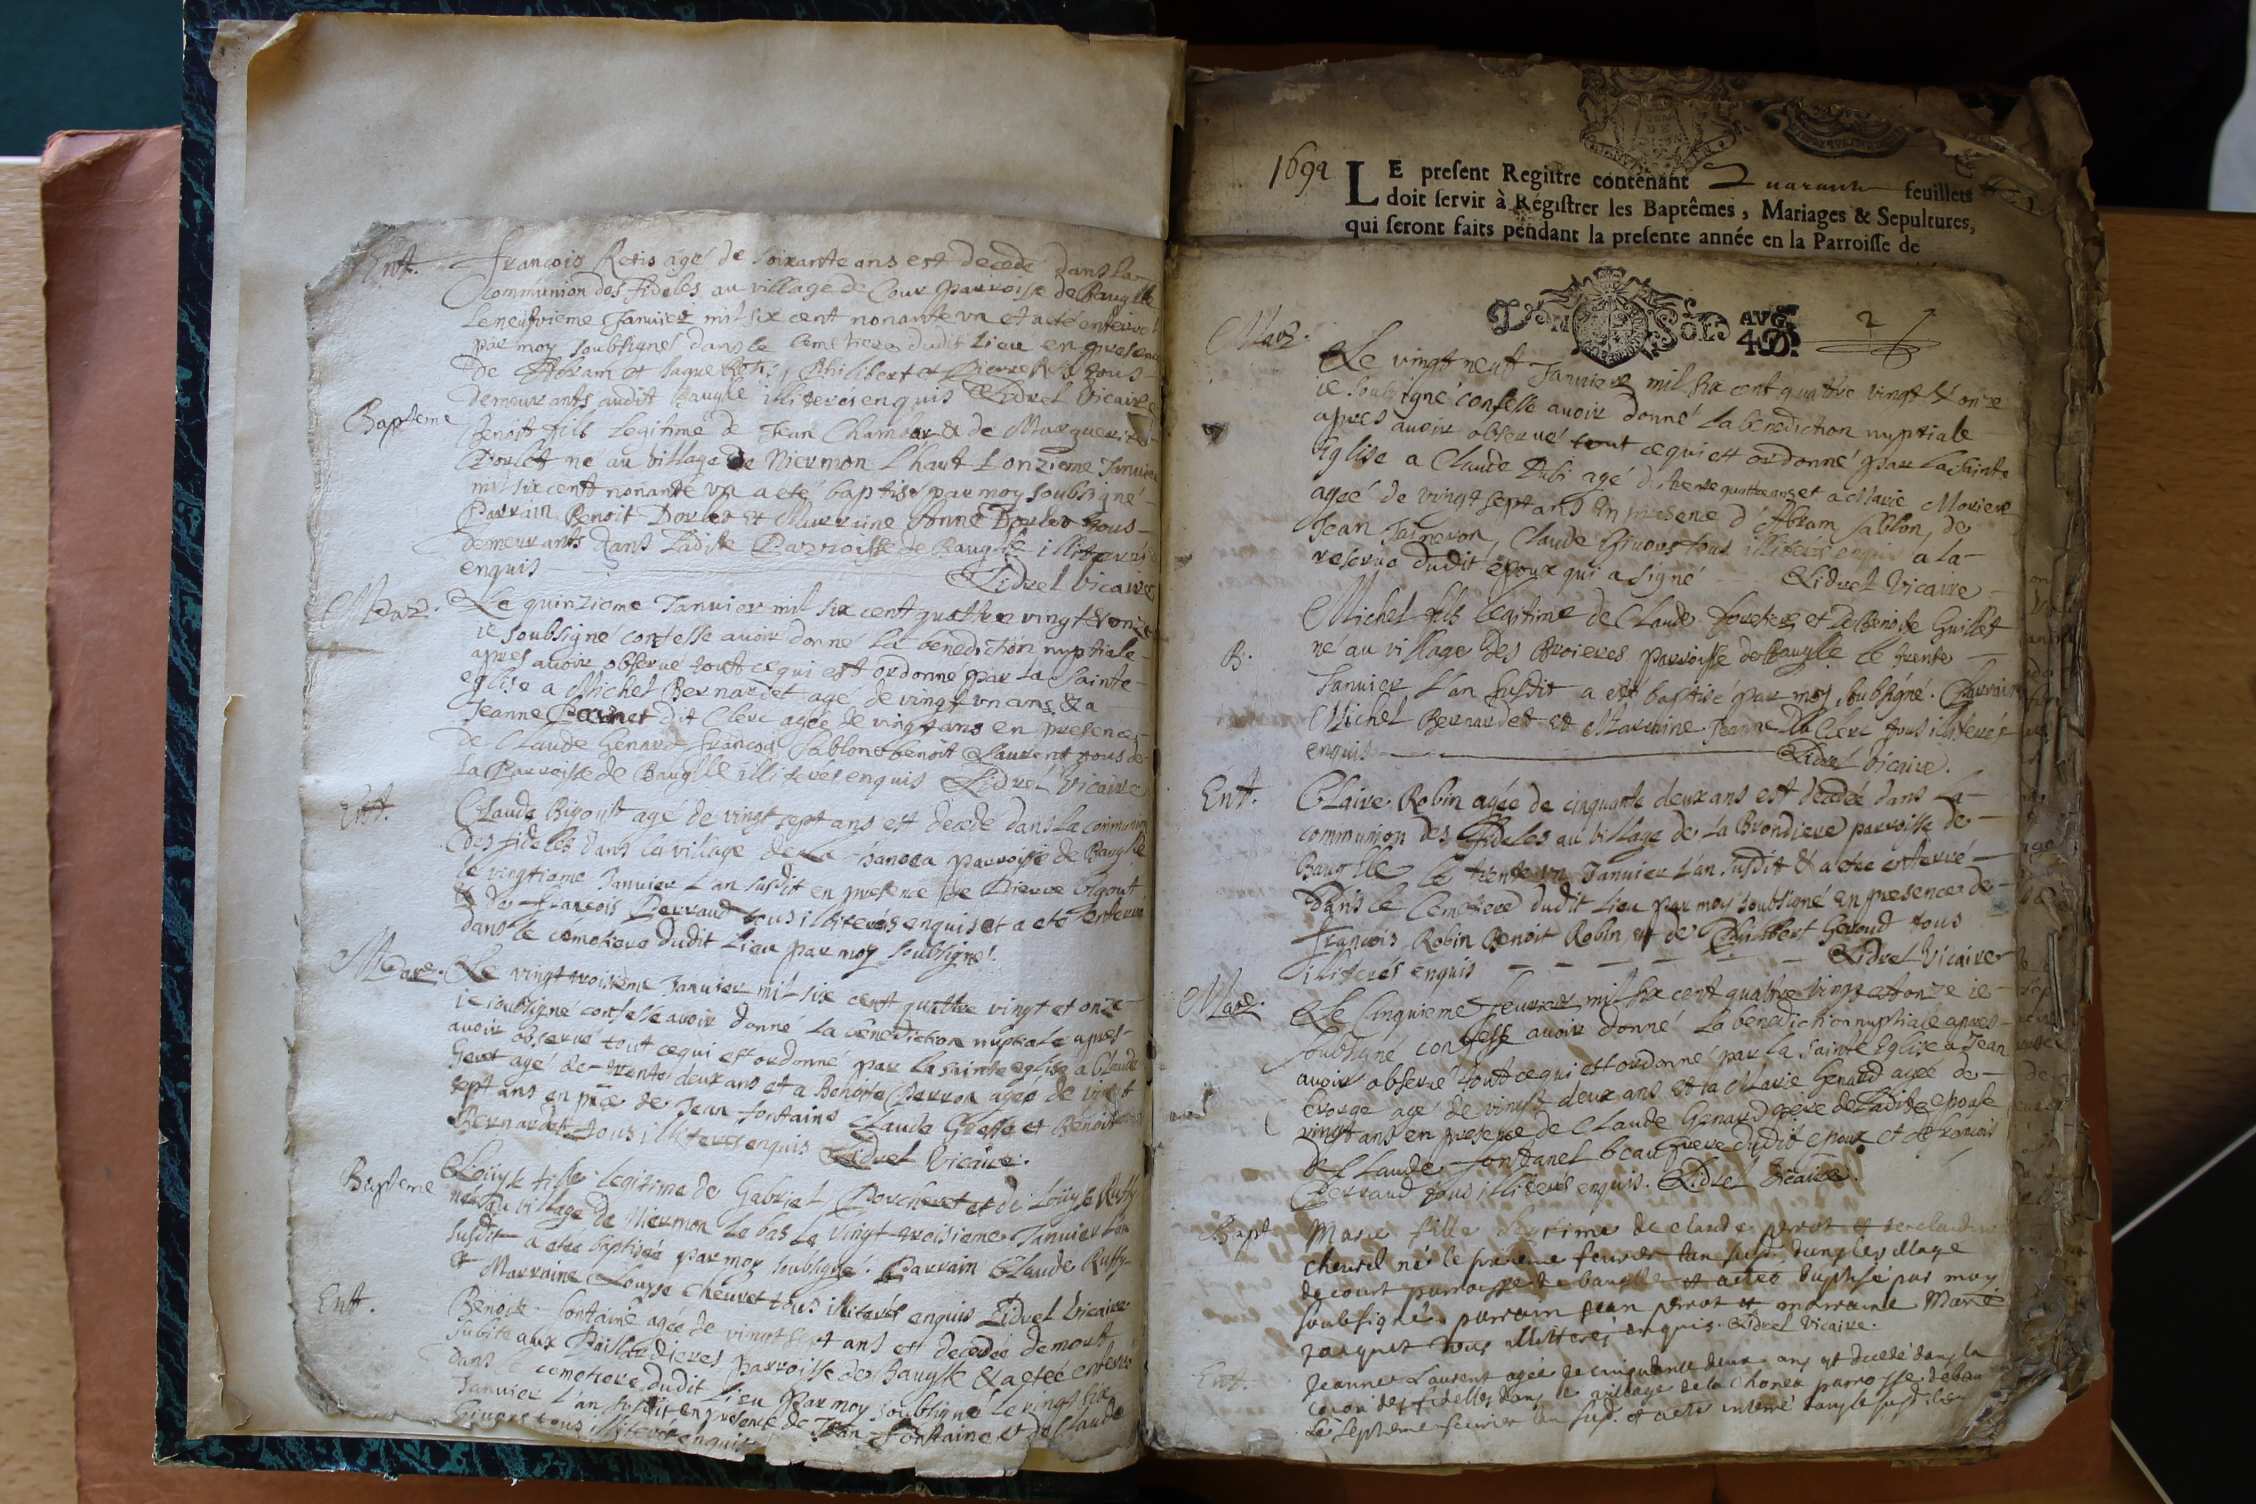 Ent. François Retis agé de soixante ans est decedé dans la
communion des fideles au village de Cour parroisse de Baugle
le neufvieme Janvier mil six cent nonante un et a eté enterré
par moy soubsigné dans le cemetiere dudit Lieu en presence
de Abram et Philibert et Pierre tous
demeurants audit Baugle illiteres enquis Lidrel Vicaire
Bapteme Benoit fils legitime de Jean Chambar & de Marguerite
Dorlet né au village de Niermon l'haut L'onzieme Janvier
mil six cent nonante un a eté baptisé par moy soubsigné
Parrain Benoit Dorlet et Marraine Anne Dorlet tous
demeurants dans Ladite Parroisse de Baugle illiterés
enquis Lidrel Vicaire
Mar. Le quinzieme Janvier mil six cent quattre vingt & onze
ie soubsigné confesse avoir donné La benediction nyptiale
apres avoir observé tout ce qui est ordonné par La Sainte
eglise a Michel Bernardet agé de vingt un ans & a
Jeanne dit Clerc agée de vingt ans en presence
de Claude Genard François Sablon benoit Laurent tous de
La Parroisse de Baugle illiterés enquis Lidrel Vicaire
Ent. Claude Bigout agé de vingt sept ans est decedé dans La communion
des fideles dans la village de La parroisse de Baugle
le vingtieme Janvier L'an susdit en presence de Pierre bigout
& de François Perraud tous illiteres enquis et a eté enterré
dans le cemetiere dudit Lieu par moy soubsigné.
Mare. Le vingt troisieme Janvier mil six cent quattre vingt et onze
ie soubsigné confesse avoir donné La benediction nyptiale apres
avoir observé tout ce qui est ordonné par La sainte eglise a Claude
agé de trente deux ans et a Benoite Perron agée de vingt
sept ans en pnce de Jean fontaine Claude et Benoit
Bernardet tous illiteres enquis Lidrel Vicaire.
Bapteme Loüyse fille legitime de Gabriel Porcheret et de Loüyse Ruffy
née au village de Niermon le bas Le vingt troisieme Janvier L'an
susdit a etée baptisée par moy soubsigné. Parrain Claude Ruffy
& Marraine Louyse Cheuret tous illiterés enquis Lidrel Vicaire
Ent. Benoite fontaine agée de vingt sept ans est decedée de mort
subite aux parroisse de Baugle & a etée enterré
dans le cemetiere dudit Lieu par moy soubsigné Le vingt six
Janvier L'an susdit en presence de Jean fontaine et de Claude
Givors tous illiteré enquis
1692 LE present Registre contenant Quarante feuillets
doit servir à Régistrer les Baptêmes, Mariages & Sepultures,
qui seront faits pendant la presente année en la Parroisse de
SOL AVG.
2
Mar. Le vingt neuf Janvier mil six cent quattre vingt & onze
ie soubsigné confesse avoir donné La benediction nyptiale
apres avoir observé tout ce qui est ordonné par La Sainte
Eglise a Claude Dubi agé de trente quattre ans et a Marie Moriere
agée de vingt sept ans En presence d'Abram Sablon, de
Jean Taineron, Claude Givors tous illiterés enquis a la
reserve dudit epoux qui a signé Lidrel Vicaire
B. Michel fils legitime de Claude et de Benoite Guillet
né au village des Broieres parroisse de Baugle le trente
Janvier L'an susdit a eté baptisé par moy soubsigné. Parrain
Michel Bernardet et Marraine Jeanne du Clerc tous illiterés
enquis Lidrel Vicaire.
Ent. Claire Robin agée de cinquante deux ans est decedée dans La
communion des fideles au village de La Brondiere parroisse de
Baugle le trente un Janvier L'an susdit & a etée enterré
Dans le Cemetiere dudit Lieu par moy soubsigné en presence de
François Robin Benoit Robin et de Philibert Geroud tous
illiterés enquis Lidrel Vicaire
Mare. Le Cinquieme feuvrier mil six cent quattre vingt et onze ie
soubsigné confesse avoir donné La benediction nyptiale apres
avoir observé tout ce qui est ordonné par La Sainte Eglise a Jean
George agé de vingt deux ans et a Marie Genard agée de
vingt ans en presence de Claude Genard pere de Ladite epouse
de Claude fontanel beau frere dudit epoux et de François
Perraud tous illiterés enquis. Lidrel Vicaire.
Bapt Marie fille legitime de claude perrot et de claudine
cheuril née le feuvrier lan susd. dung le village
de court parroisse de baugle et a eteé baptisé par moy
soubsigné parrain Jean perrot et marraine Marie
Jacquet tous illitterés enquis. Lidrel Vicaire.
Ent. Jeanne Laurent agée de cinquante deux ans est decedé dans la
des fidelles dans le village de la Chanea parroisse de bau
Le septieme feuvrier lan susd. et a eté enterré dans le susd. lieu